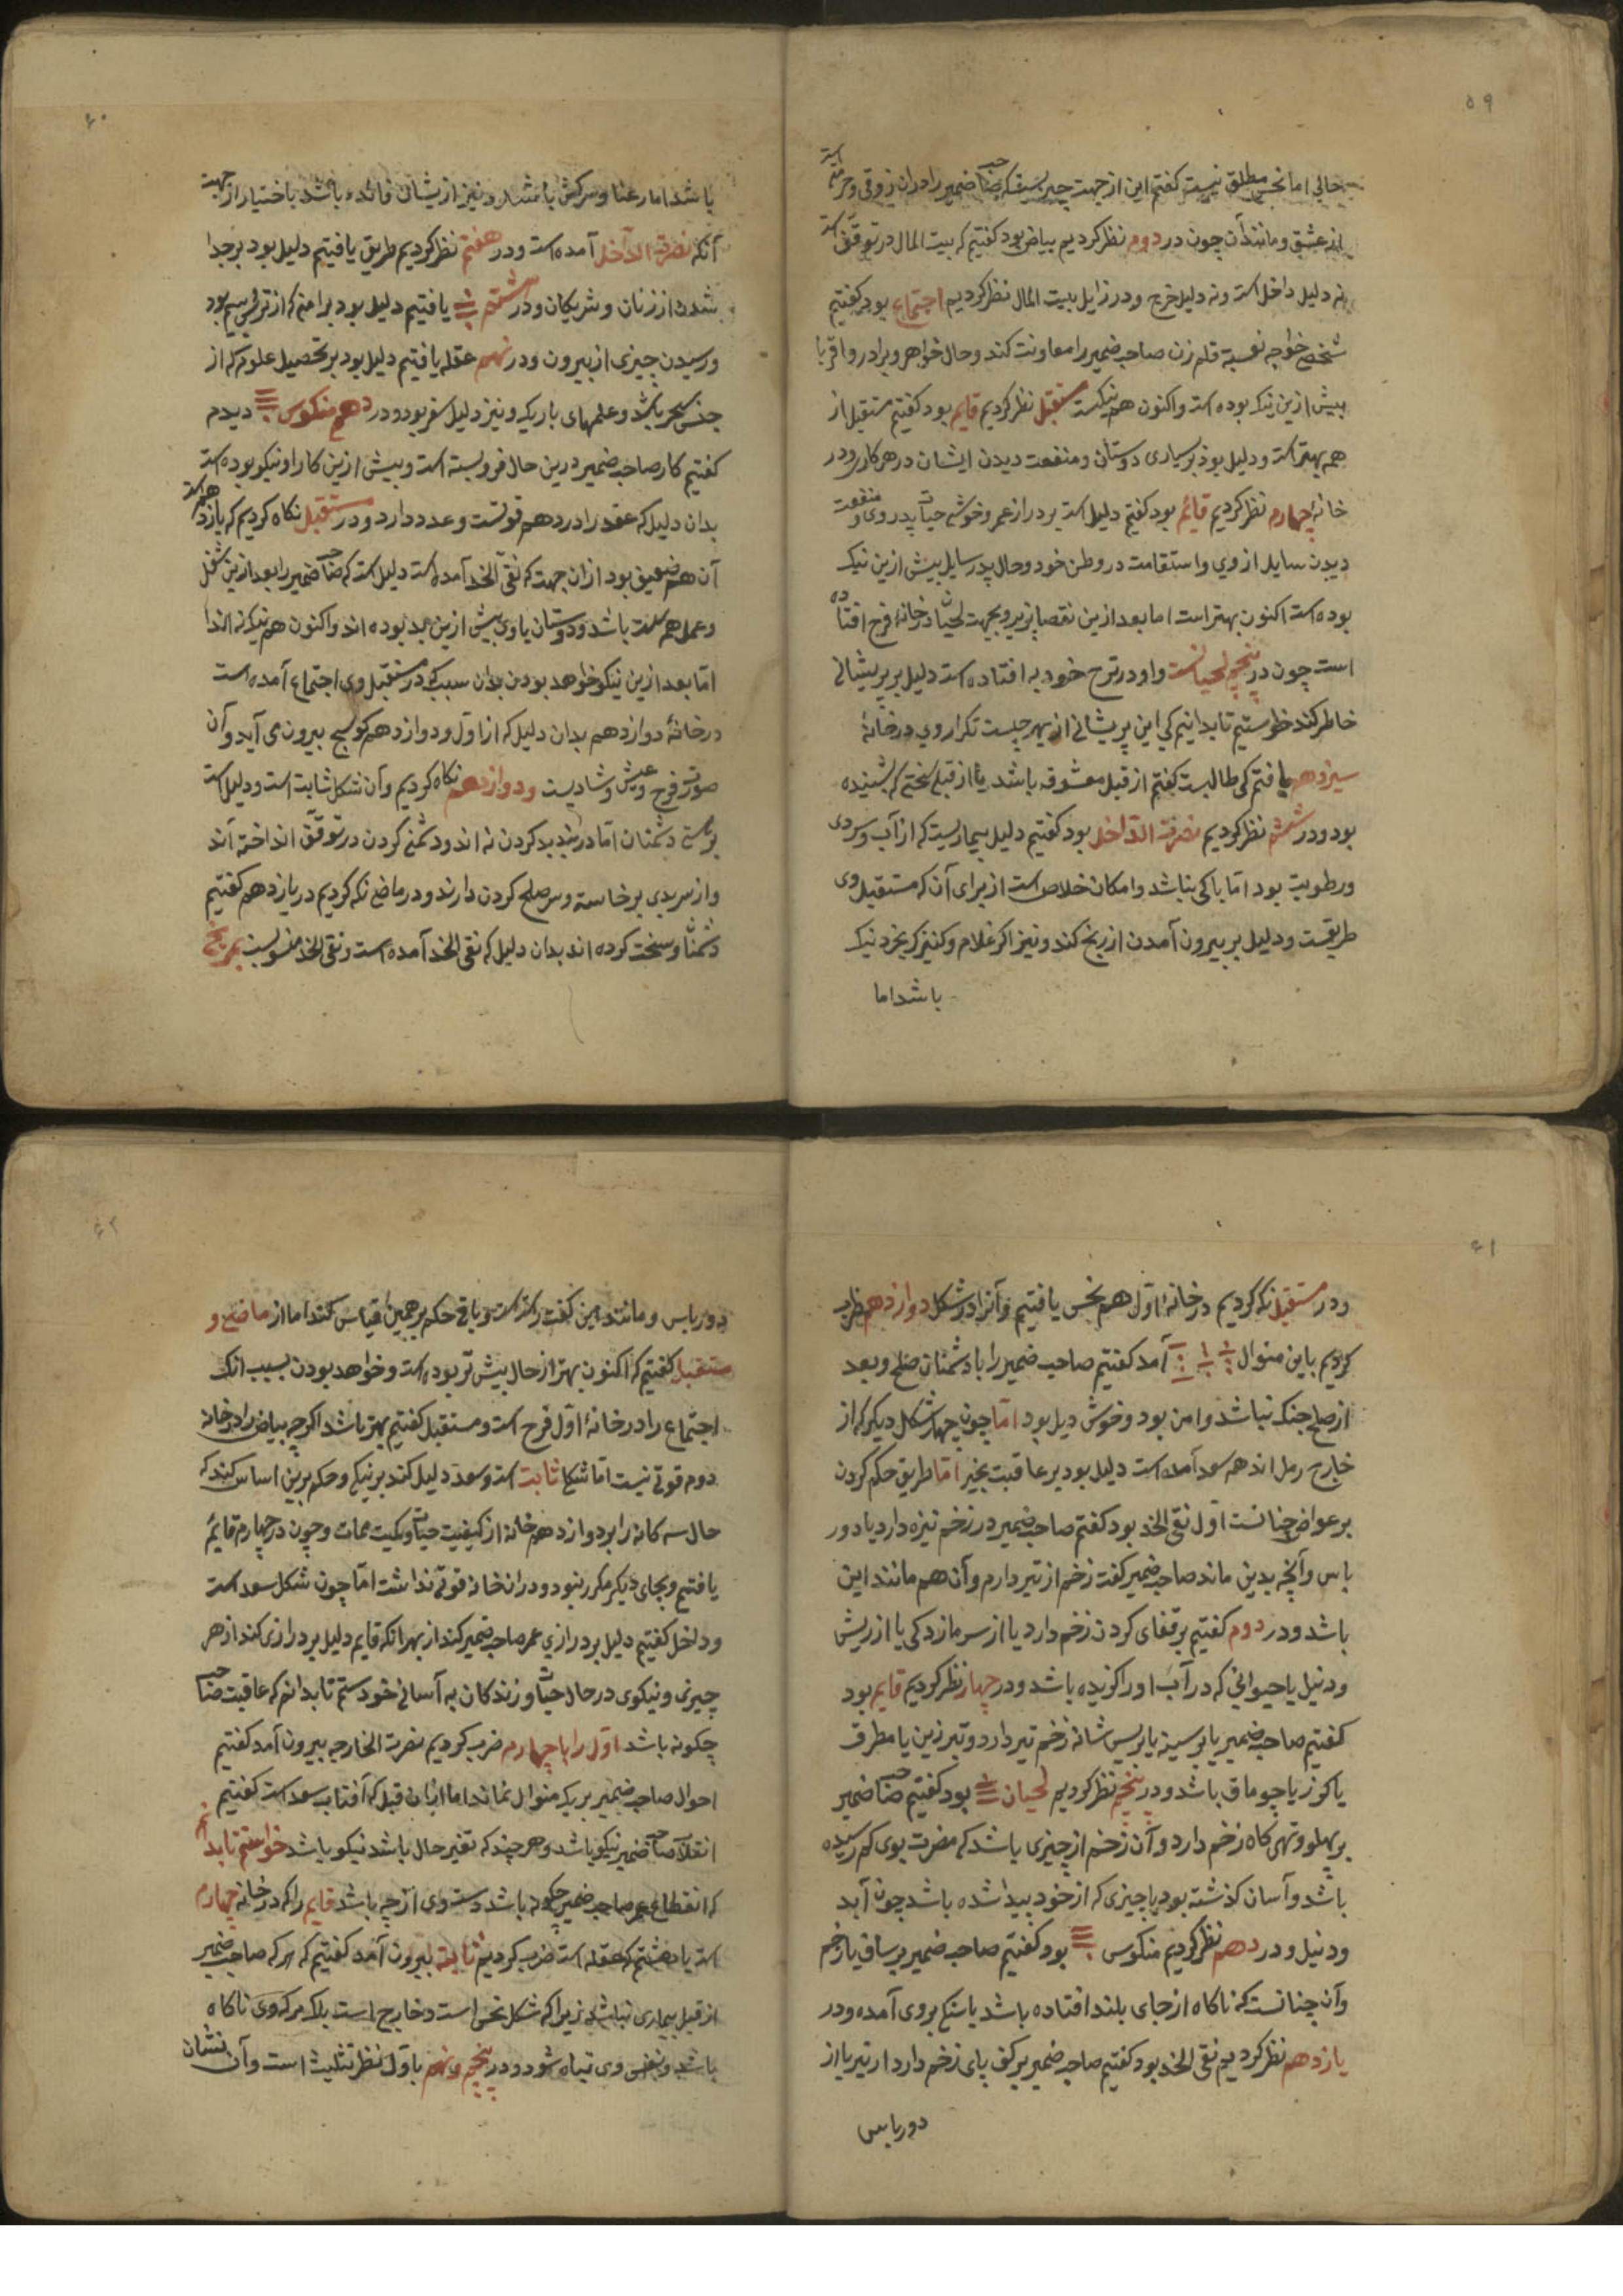 ۵۹
حالی اما نحس مطلق نیست کفتم این از جهت چیزیست که صاحب ضمیر را در ان ذوقی و حرمتی است
از عشق و مانند آن چون در دوم نظر کردیم بیاض بود کفتیم که بیت المال در توقف است
نه دلیل داخل است و نه دلیل خرج و در زایل بیت المال نظر کردیم اجتماع بود کفتیم
شخصی خواجه قلم زن صاحب ضمیر را معاونت کند و حال خواهر و برادر و اقربا
بیش ازین نیک بوده است واکنون هم نیکست مستقبل نظر کردیم قایم بود کفتیم مستقبل از
همه بهتر است و دلیل بود بر بسیاری دوستان و منفعت دیدن ایشان در هر کار و در
خانهٔ چهارم نظر کردیم قائم بود کفتم دلیل است بر دراز عمر و خوشی حیات پدر وی و منفعت
دیدن سایل از وی واستقامت در وطن خود و حال پدر سایل بیش ازین نیک
بوده است اکنون بهتر است اما بعد ازین نقصان پزیرد بجهت لحیان در خانهٔ فرح افتاده
است چون در پنجم لحیانست واو در ترح خود به افتاده است دلیل بر پریشانی
خاطر کند خواستیم تا بدانیم کی این پریشانی از بهر چیست تکرار وی در خانهٔ
سیزدهم یافتم کی طالبست کفتم از قبل معشوقه باشد یا از قبل سختی که بشنیده
بود و در ششم نظر کردیم نصرت الداخل بود کفتیم دلیل بیماریست که از آب و سردی
و رطوبت بود اما باکی نباشد وامکان خلاص است از برای آن که مستقبل وی
طریقست و دلیل بر بیرون آمدن از رنج کند و نیز اکر غلام و کنیزک بخرد نیک
باشد اما
۶۰
باشد اما رعنا و سرکش باشد و نیز از یشان فائده باشد باختیار از جهت
آنکه نصرت الداخل آمده است و در هفتم نظر کردیم طریق یافتیم دلیل بود بر جدا
شدن از زنان و شریکان و در هشتم یافتیم دلیل بود بر امنه که از ترس بیم بود
و رسیدن چیزی از بیرون و در نهم عقله یافتیم دلیل بود بر تحصیل علوم که از
جنس سحر باشد و علمهای باریک و نیز دلیل سفر بود و در دهم منکوس دیدم
کفتیم کار صاحب ضمیر درین حال فرو بسته است و بیش ازین کار او نیکو بوده است
بدان دلیل که عقد را در دهم قوتست و عدد دارد و در مستقبل نکاه کردیم که یازدهم است
آن هم ضعیف بود از ان جهت که نقی الخد آمده است دلیل است که صاحب ضمیر را بعد ازین شغل
و عمل هم سست باشد و دوستان یاوی بیش ازین بد بوده اند واکنون هم نیک نه اند
اما بعد ازین نیکو خواهد بودن بدان سبب که در مستقبل وی اجتماع آمده است
در خانهٔ دوازدهم بدان دلیل که از اول و دوازدهم کوسج بیرون می آید و آن
صورت فرح و عیش و شادیست و دوازدهم نکاه کردیم وآن شکل ثابت است و دلیل است
بر سستی دشمنان اما در بند بد کردن نه اند و دشمنی کردن در توقف انداخته اند
و از سر بدی برخاسته و سر صلح کردن دارند و در ماضی نکه کردیم در یازدهم کفتیم
دشمنان و سخت کرده اند بدان دلیل که نقی الخد آمده است و نقی الخد منسوبست بمریخ
۶۱
و در مستقبل نکه کردیم در خانهٔ اول هم نحس یافتیم و آنرا در شکل دوازدهم ضرب
کردیم باین منوال آمد کفتیم صاحب ضمیر را با دشمنان صلح و بعد
از صلح جنک نباشد وامن بود و خوش دیل بود اما چون چهار شکل دیکر که از
خارج رمل اند همه سعد آمده است دلیل بود بر عاقبت بخیر اما طریق حکم کردن
بر عواض چنانست اول نقی الخد بود کفتم صاحب ضمیر در زخم نیزه دارد یا دور
باس و آنچه بدین ماند صاحب ضمیر کفت زخم از تیر دارم و آن هم مانند این
باشد و در دوم کفتیم بر قفای کردن زخم دارد یا از سر مازدکی یا از ریش
و دنبل یا حیوانی که در آب اورا کزیده باشد و در چهار نظر کردیم قایم بود
کفتیم صاحب ضمیر یا بر سینه یا بر پس شانه زخم تیر دارد و تبر زین یا مطرف
یا کرز یا چوماق باشد و در پنجم نظر کردیم لحیان بود کفتیم صاحب ضمیر
بر پهلو و تهی کاه زخم دارد و آن زخم از چیزی باشد که مضرت بوی کم رسیده
باشد و آسان کذشته بود یا چیزی که از خود پیدا شده باشد چون آبد
و دنبل و در دهم نظر کردیم منکوس بود کفتیم صاحب ضمیر بر ساق پا زخم
وآن چنانست که ناکاه از جای بلند افتاده باشد یا سنکی بر وی آمده و در
یازدهم نظر کردیم نقی الخد بود کفتیم صاحب ضمیر بر کف پای زخم دارد از تیر یا از
دورباس
۶۲
دورباس و مانند این کفت راست است و باقی حکم بر همین قیاس کند اما از ماضی و
مستقبل کفتیم که اکنون بهتر از حال بیش تر بوده است و خواهد بودن بسبب انک
اجتماع را در خانهٔ اول فرح است و مستقبل کفتیم بهتر باشد اکرچه بیاض را در خانه
دوم قوتی نیست اما شکل ثابت است و سعد دلیل کند بر نیکی و حکم برین اساس کند که
حال سه کانه را بر دوازدهم خانه از کیفیت حیات و کمیت ممات و چون در چهارم قایم
یافتیم و بجای دیکر مکرر نبود و در ان خانه قوتی نداشت اما چون شکل سعد است
و داخل کفتیم دلیل بر درازی عمر صاحب ضمیر کند از بهر انکه قایم دلیل بر درازی کند از هر
چیزی و نیکوی در حال حیات و زندکان به آسانی خواستم تا بدانم که عاقبت صاحب
چکونه باشد اول را با چهارم ضرب کردیم نصرت الخارجه بیرون آمد کفتیم
احوال صاحب ضمیر بر یک منوال نماند اما از ان قبل که آفتاب سعد است کفتیم
انقلاب صاحب ضمیر نیکو باشد و هر چند که تغیر حال باشد نیکو باشد خواستم تا بدانم
که انقطاع عمر صاحب ضمیر چکونه باشد و سستی وی از چه باشد قایم را که در خانه چهارم
است با هشتم که عقله است ضرب کردیم ثابته بیرون آمد کفتیم که مرکه صاحب ضمیر
از قبل بیماری نباشد زیرا که شکل نحس است و خارج است بلک مرک وی ناکاه
باشد و نفس وی تباه شود و در پنجم و نهم با اول نظر تثلیث است وآن نشان